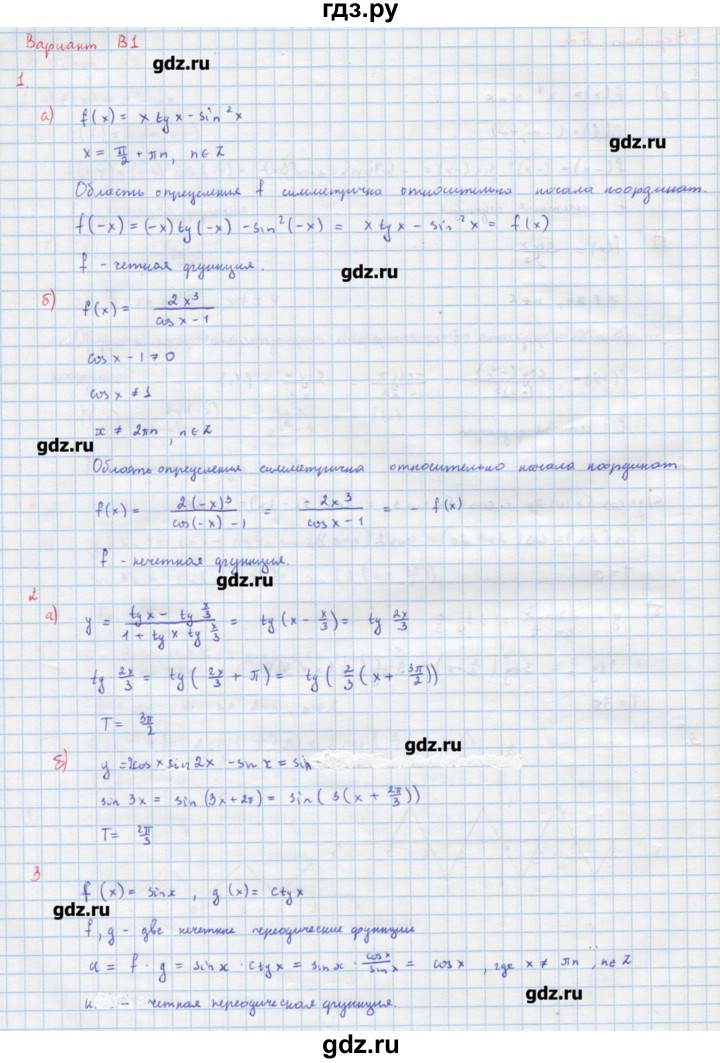 гдз.ру
Вариант В1
gdz.ru
1.
а) f(x) = x tg x - sin²x
gdz.ru
x = π/2 + πn, n ∈ Z
Область определения f симметрична относительно начала координат.
f(-x) = (-x) tg(-x) - sin²(-x) = x tg x - sin²x = f(x)
f - четная функция.
gdz.ru
б) f(x) = 2x³/(cos x - 1)
cos x - 1 ≠ 0
cos x ≠ 1
x ≠ 2πn, n ∈ Z
gdz.ru
Область определения симметрична относительно начала координат.
f(x) = 2(-x)³/(cos(-x) - 1) = -2x³/(cos x - 1) = - f(x)
f - нечетная функция.
gdz.ru
2
а) y = (tg x - tg x/3)/(1 + tg x tg x/3) = tg(x - x/3) = tg 2x/3
tg 2x/3 = tg(2x/3 + π) = tg(2/3(x + 3π/2))
T = 3π/2
gdz.ru
б) y = 2cos x sin 2x - sin x = sin
sin 3x = sin(3x + 2π) = sin(3(x + 2π/3))
T = 2π/3
3
f(x) = sin x, g(x) = ctg x
gdz.ru
f, g - две нечетные переодические функции
u = f · g = sin x · ctg x = sin x · cos x/sin x = cos x, где x ≠ πn, n ∈ Z
gdz.ru
u - четная переодическая функция.
гдз.ру